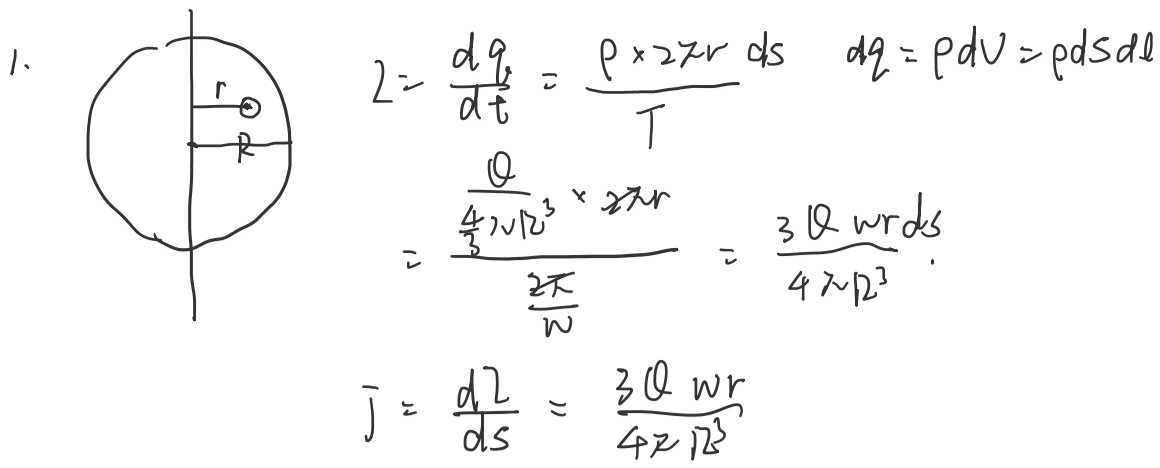 1.
r
R
I = dq/dt = ρ × 2πr ds / T    dq = ρdV = ρdsdl
= (Q / (4/3 πR³) × 2πr) / (2π/w) = 3Q wr ds / 4πR³ .
J = dI/ds = 3Q wr / 4πR³